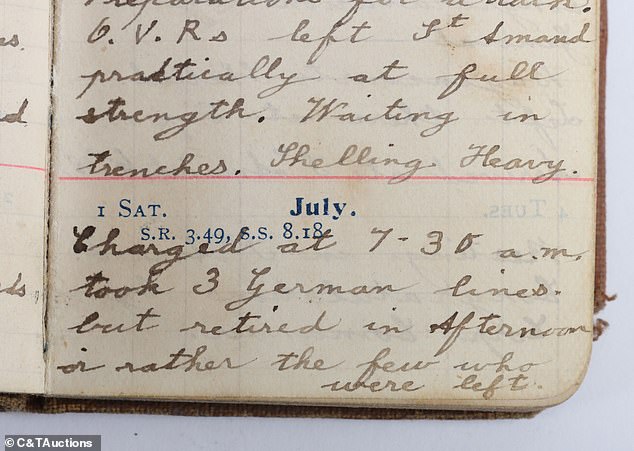 preparations for
O.V.Rs left St Amand
practically at full
strength. Waiting in
trenches. Shelling Heavy.
1 SAT. July.
S.R. 3.49, S.S. 8.18
Charged at 7-30 a.m.
took 3 German lines.
but retired in Afternoon
or rather the few who
were left.
4 TUES.
C&TAuctions